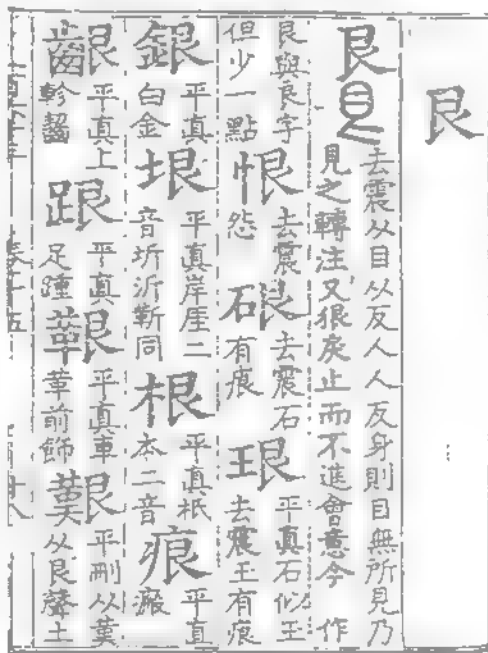 艮
艮去震从目从反人人反身則目無所見乃見之轉注又很戾止而不進會意今 作
艮與良字但少一點恨去震怨硍去震石有痕珢平真石似玉去震玉有痕
銀平真白金垠平真岸厓二音圻沂靳同根平真柢本二音痕平真瘢
齦平真上軫齧跟平真足踵鞎平真車革前飾艱平刪从堇从艮聲土